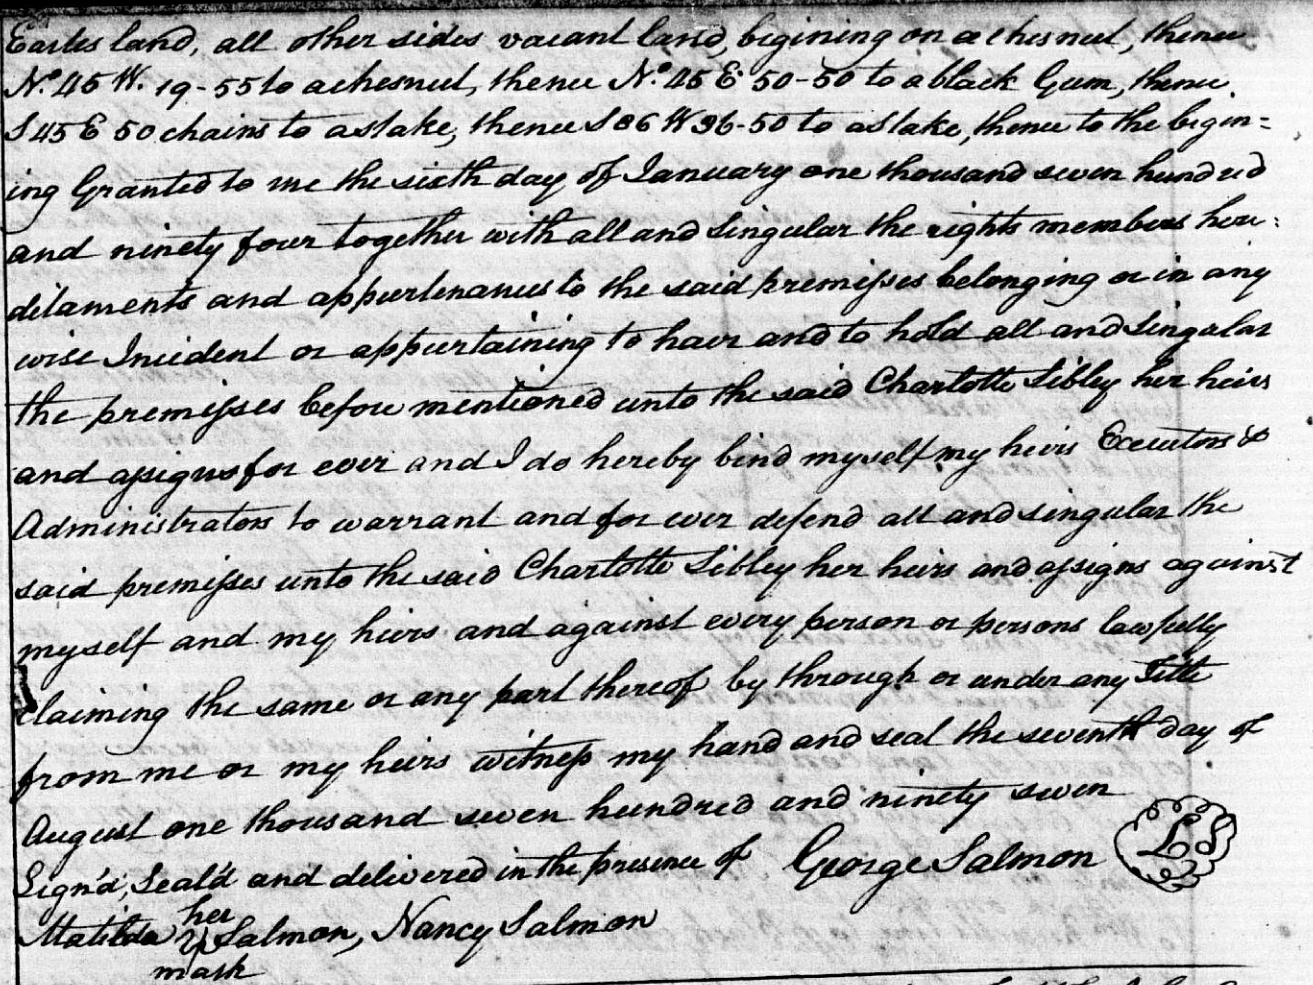 Earles land, all other sides vacant land, begining on a chesnut, thence
No. 45 W. 19-55 to a chesnut, thence No. 45 E 50-50 to a black Gum, thence
S 45 E 50 chains to a stake, thence S 86 W 36-50 to a stake, thence to the begin=
ing Granted to me the sixth day of January one thousand seven hundred
and ninety four together with all and Singular the rights members here:
dilaments and appurtenances to the said premisses belonging or in any
wise Incident or appurtaining to have and to hold all and Singular
the premisses before mentioned unto the said Charlotte Sibley her heirs
and assigns for ever and I do hereby bind myself my heirs Executors &
Administrators to warrant and for ever defend all and singular the
said premisses unto the said Charlotte Sibley her heirs and assigns against
myself and my heirs and against every person or persons lawfully
claiming the same or any part thereof by through or under any Title
from me or my heirs witness my hand and seal the seventh day of
August one thousand seven hundred and ninety seven
Sign'd, Seal'd and delivered in the presence of George Salmon L S
her
Matilda X Salmon, Nancy Salmon
mark